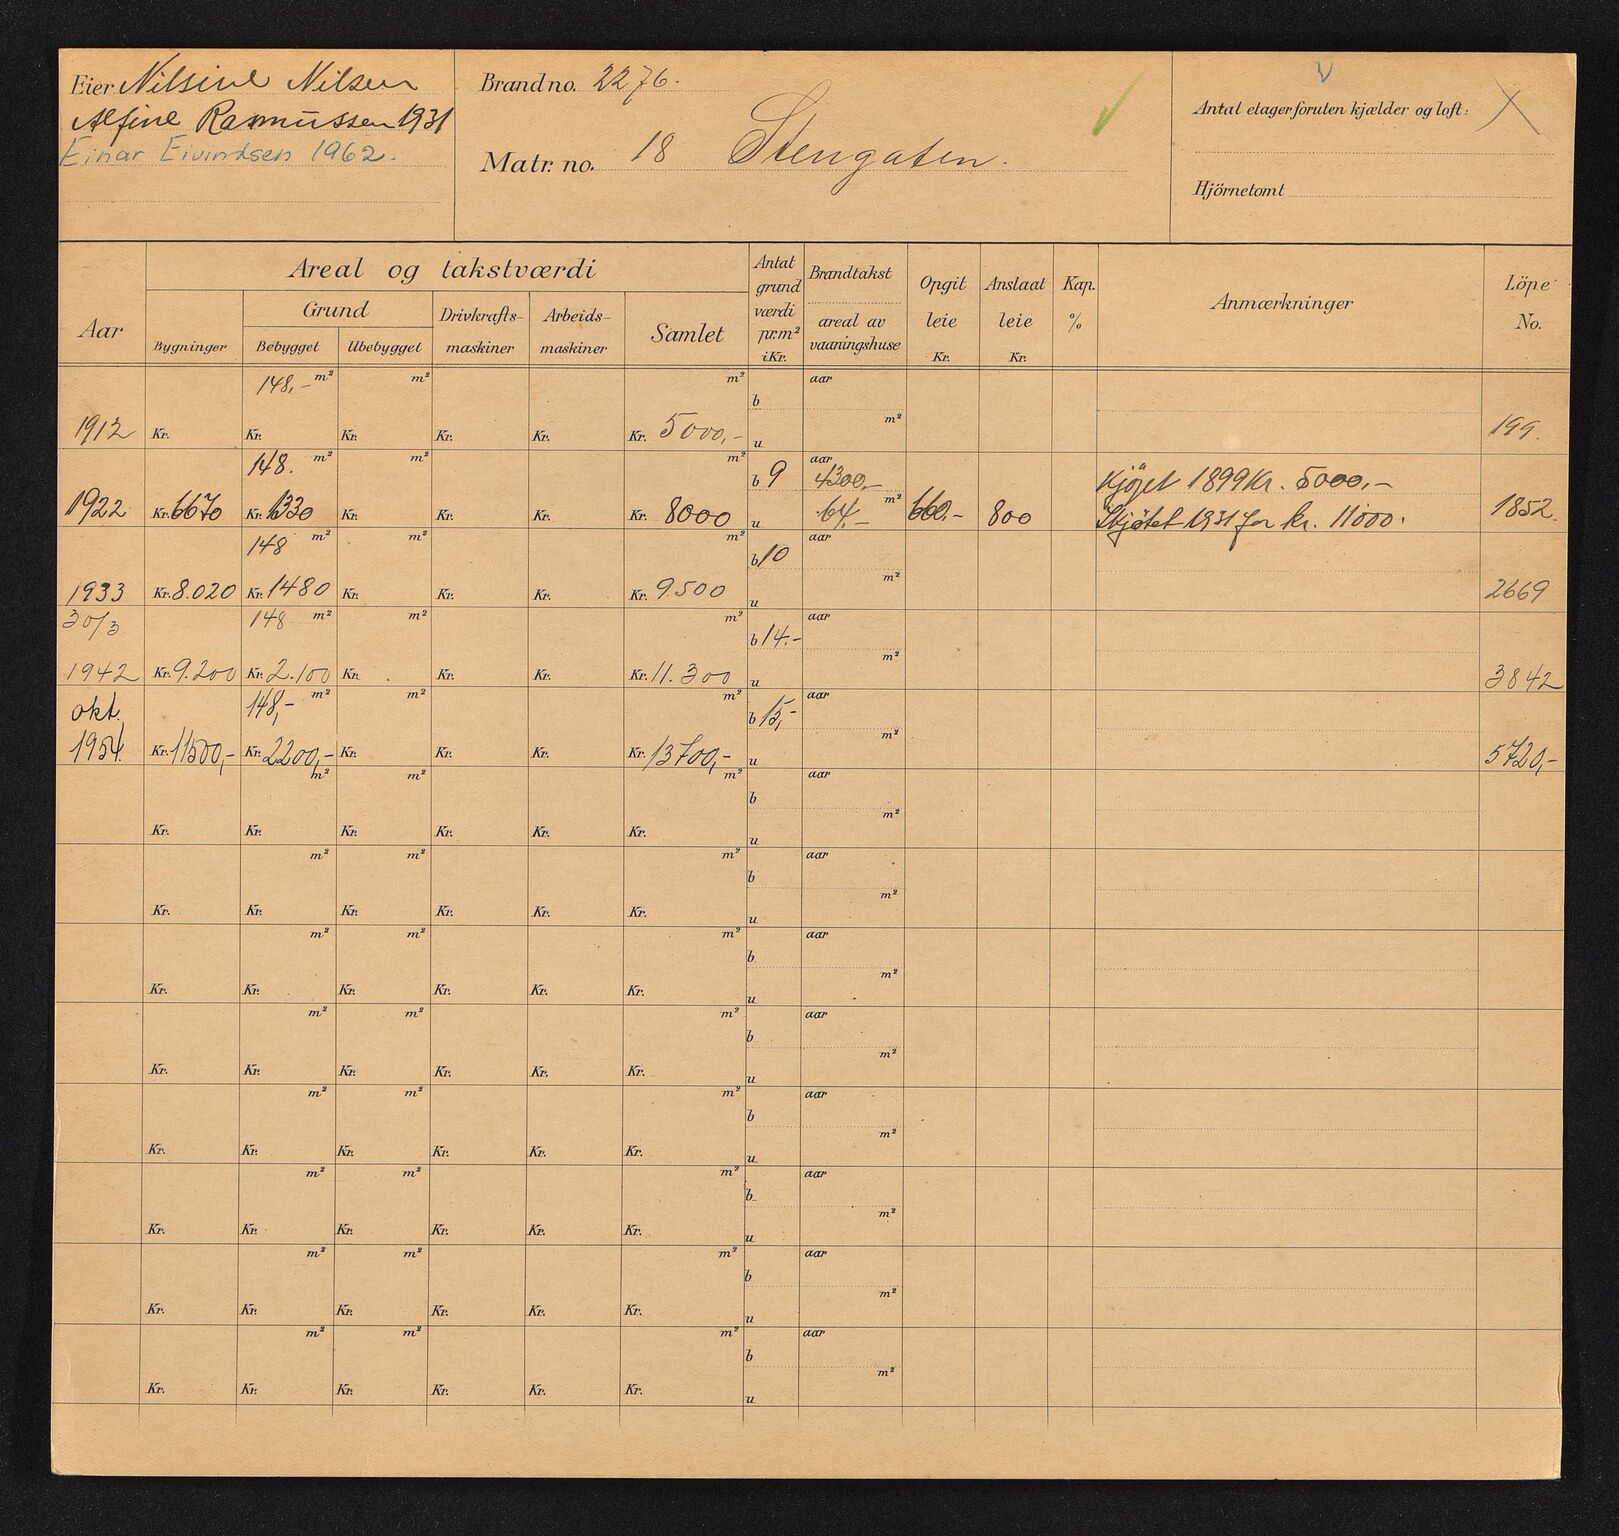 Eier Nilsine Nilsen
Alfine Rasmussen 1931
Einar Eivindsen 1962.
Brand no. 2276.
Matr. no. 18 Stengaten.
V
Antal etager foruten kjælder og loft:
Hjörnetomt
Aar
Areal og takstværdi
Bygninger
Grund
Bebygget Ubebygget
Drivkrafts-
maskiner
Arbeids-
maskiner
Samlet
Antat
grund
værdi
pr. m²
i Kr.
Brandtakst
areal av
vaaningshuse
Opgit
leie
Kr.
Anslaat
leie
Kr.
Kap.
%
Anmærkninger
Löpe
No.
148,- m² m² m² aar
b
m²
1912 Kr. Kr. Kr. Kr. Kr. Kr. 5000,- u 199.
148. m² m² m² b 9 aar 4300,- Kjøpt 1899 Kr. 5000,-
1922 Kr. 6670 Kr. 1330 Kr. Kr. Kr. Kr. 8000 u 64,- m² 660,- 800 Skjøtet 1931 for kr. 11000. 1852.
148 m² m² m² b 10 aar
m²
1933 Kr. 8.020 Kr. 1480 Kr. Kr. Kr. Kr. 9500 u 2669
30/3 148 m² m² m² b 14.- aar
m²
1942 Kr. 9.200 Kr. 2.100 Kr. Kr. Kr. Kr. 11.300 u 3842
okt. 148,- m² m² m² b 15,- aar
m²
1954. Kr. 11500,- Kr. 2200,- Kr. Kr. Kr. Kr. 13700,- u 5720,-
m² m² m² aar
b
m²
Kr. Kr. Kr. Kr. Kr. Kr. u
m² m² m² aar
b
m²
Kr. Kr. Kr. Kr. Kr. Kr. u
m² m² m² aar
b
m²
Kr. Kr. Kr. Kr. Kr. Kr. u
m² m² m² aar
b
m²
Kr. Kr. Kr. Kr. Kr. Kr. u
m² m² m² aar
b
m²
Kr. Kr. Kr. Kr. Kr. Kr. u
m² m² m² aar
b
m²
Kr. Kr. Kr. Kr. Kr. Kr. u
m² m² m² aar
b
m²
Kr. Kr. Kr. Kr. Kr. Kr. u
m² m² m² aar
b
m²
Kr. Kr. Kr. Kr. Kr. Kr. u